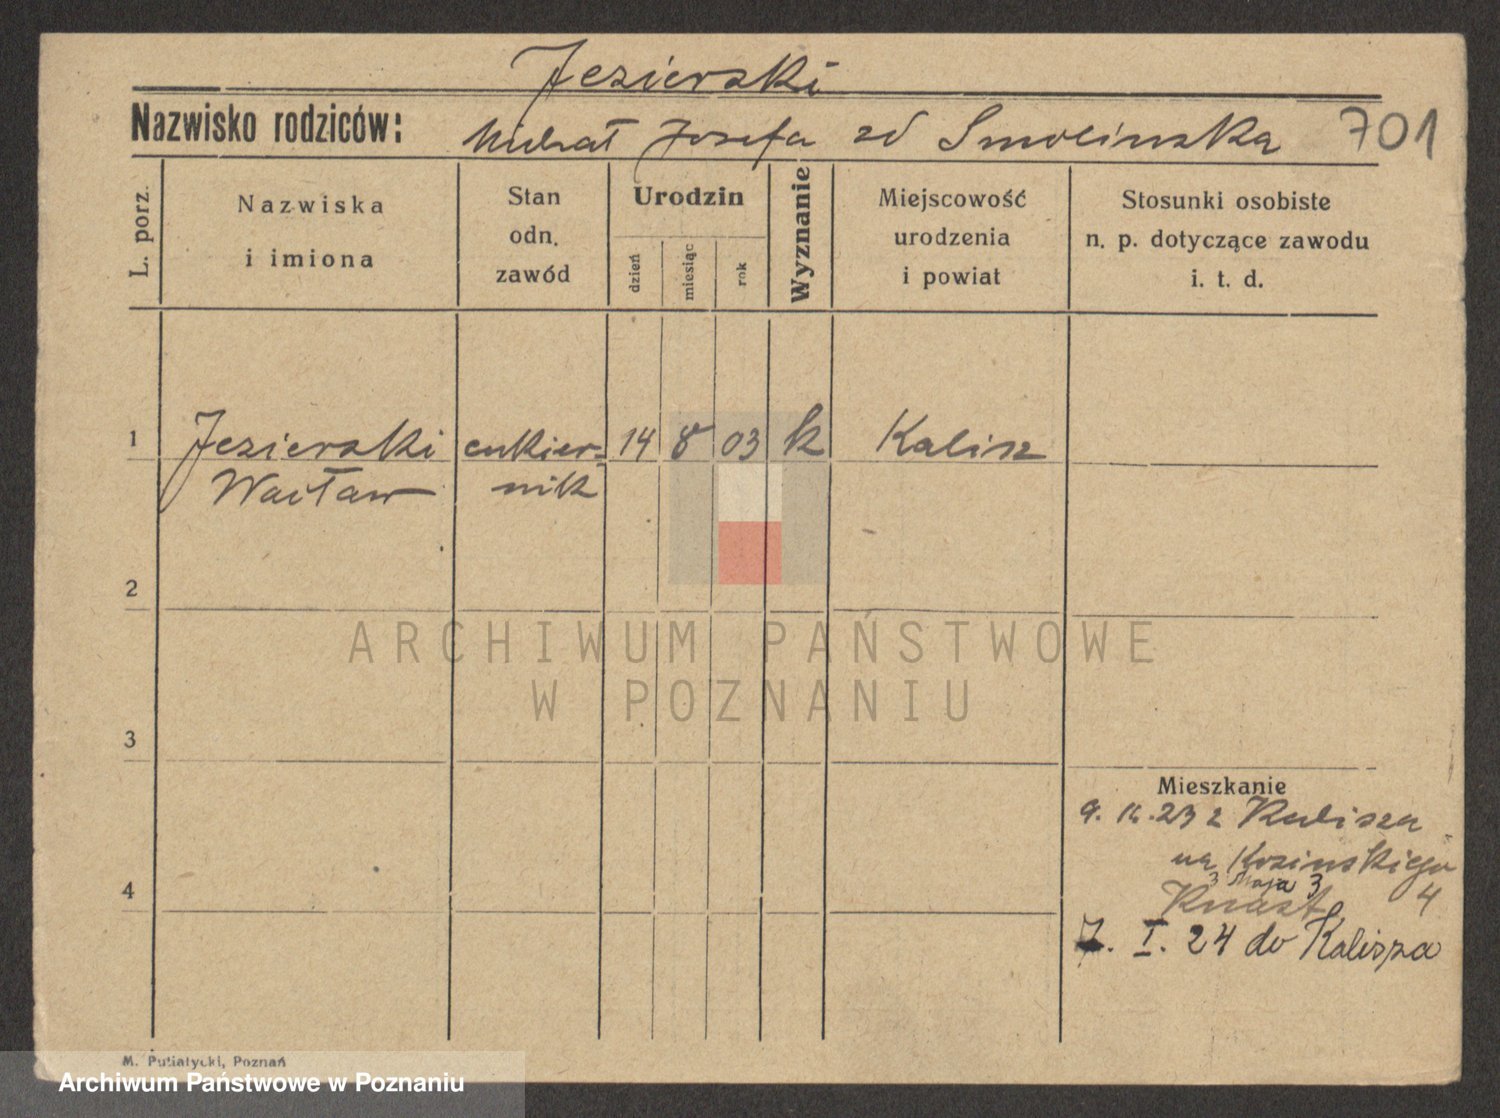 Jezierski
Nazwisko rodziców: Michał Józefa zd Smolinska 701
L. porz.
Nazwiska
i imiona
Stan
odn.
zawód
Urodzin
dzień
miesiąc
rok
Wyznanie
Miejscowość
urodzenia
i powiat
Stosunki osobiste
n. p. dotyczące zawodu
i. t. d.
1 Jezierski cukier- 14 8 03 k Kalisz
Wacław nik
2
ARCHIWUM PAŃSTWOWE
W POZNANIU
3
Mieszkanie
9. 23 z Kalisza
na
3 Maja 3
4
4
7. I. 24 do Kalisza
M. Putiatycki, Poznań
Archiwum Państwowe w Poznaniu